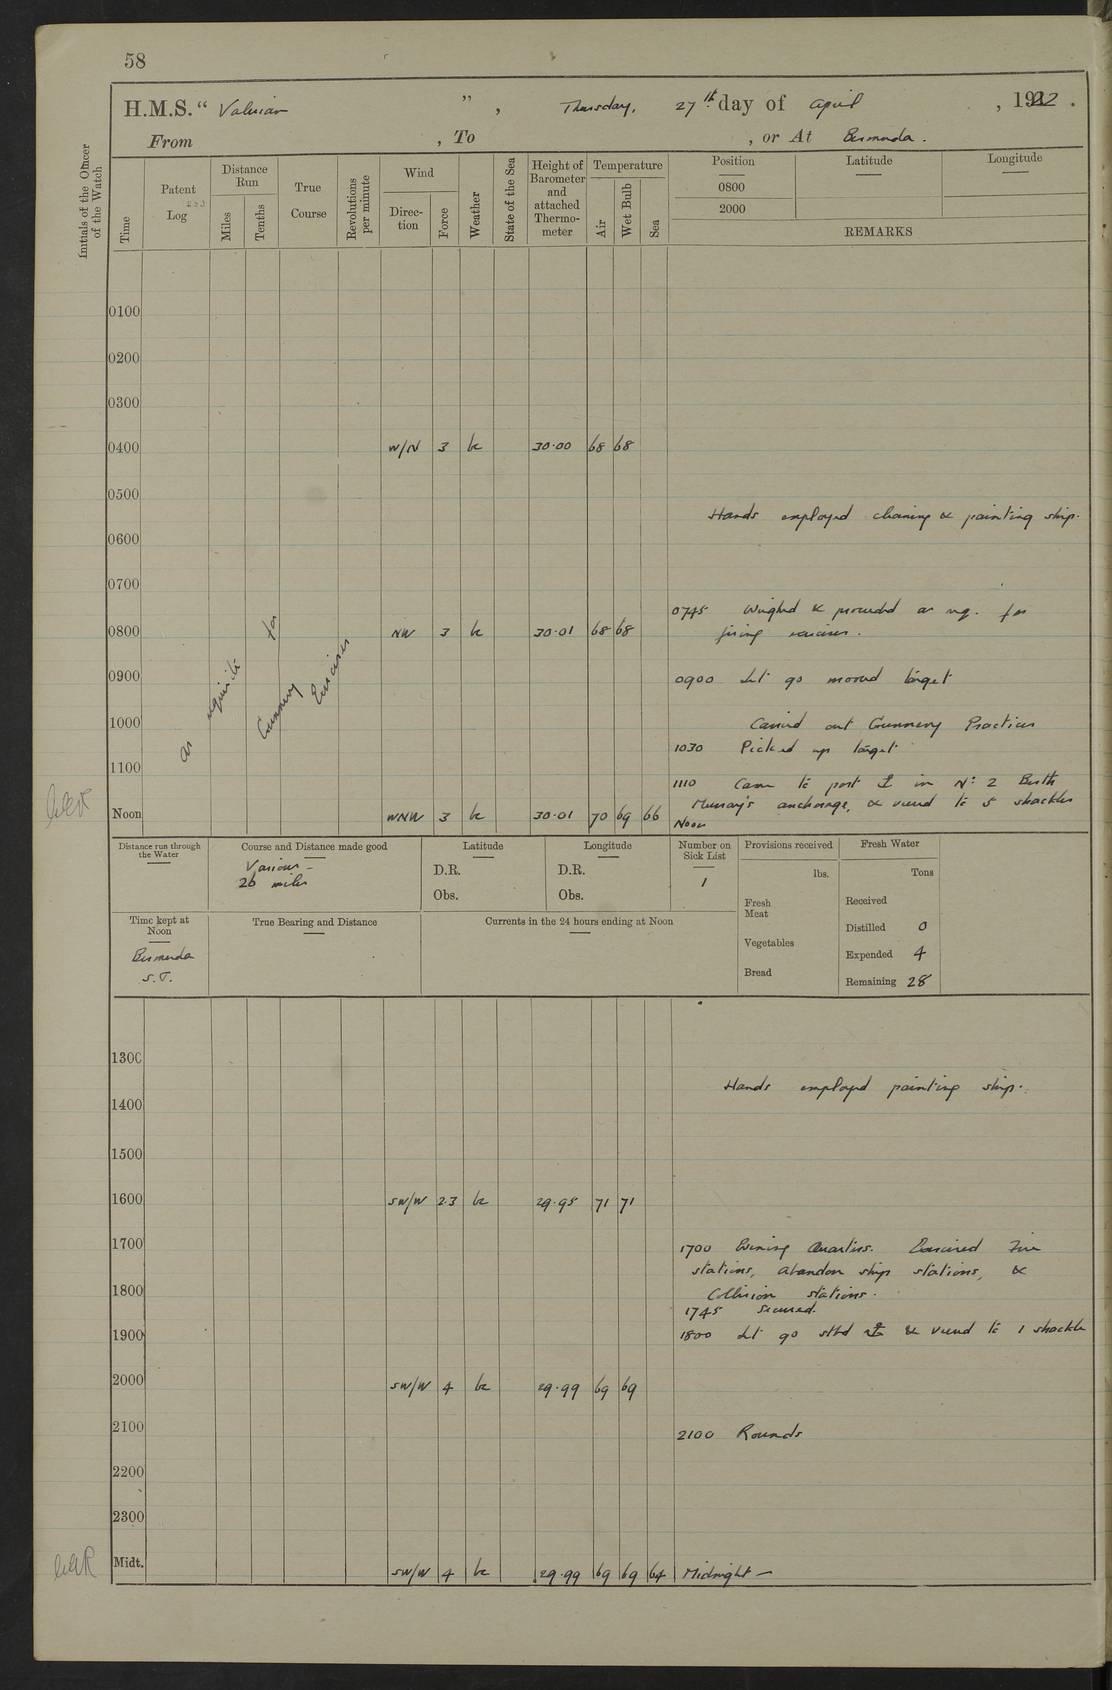 58
H.M.S. “ Valerian ”, Thursday, 27th day of April, 1922.
From , To , or At Bermuda.
Initials of the Officer of the Watch
Time
Patent Log
Distance Run
Miles
Tenths
True Course
Revolutions per minute
Wind
Direction
Force
Weather
State of the Sea
Height of Barometer and attached Thermometer
Temperature
Air
Wet Bulb
Sea
Position
0800
2000
Latitude
Longitude
REMARKS
0100
0200
0300
0400 W/N 3 bc 30·00 68 68
0500
Hands employed cleaning & painting ship.
0600
0700
0745 Weighed & proceeded as req. for
0800 NW 3 bc 30·01 68 68 firing exercises.
as requisite for Gunnery Exercises
0900 0900 Let go moored target
1000 Carried out Gunnery Practices
1030 Picked up target
1100
1110 Came to port ⚓ in No: 2 Berth
Murray's anchorage, & veered to 5 shackles
Noon WNW 3 bc 30·01 70 69 66 Noon
Distance run through the Water
Course and Distance made good
Various –
26 miles
Latitude
D.R.
Obs.
Longitude
D.R.
Obs.
Number on Sick List
1
Provisions received
lbs.
Fresh Meat
Vegetables
Bread
Fresh Water
Tons
Received
Distilled 0
Expended 4
Remaining 28
Time kept at Noon
Bermuda
S.T.
True Bearing and Distance
Currents in the 24 hours ending at Noon
1300
Hands employed painting ship.
1400
1500
1600 SW/W 2·3 bc 29·98 71 71
1700 1700 Evening Quarters. Exercised Fire
stations, abandon ship stations, &
1800 Collision stations.
1745 Secured.
1900 1800 Let go stbd ⚓ & veered to 1 shackle
2000 SW/W 4 bc 29·99 69 69
2100 2100 Rounds
2200
2300
Midt. SW/W 4 bc 29·99 69 69 64 Midnight —